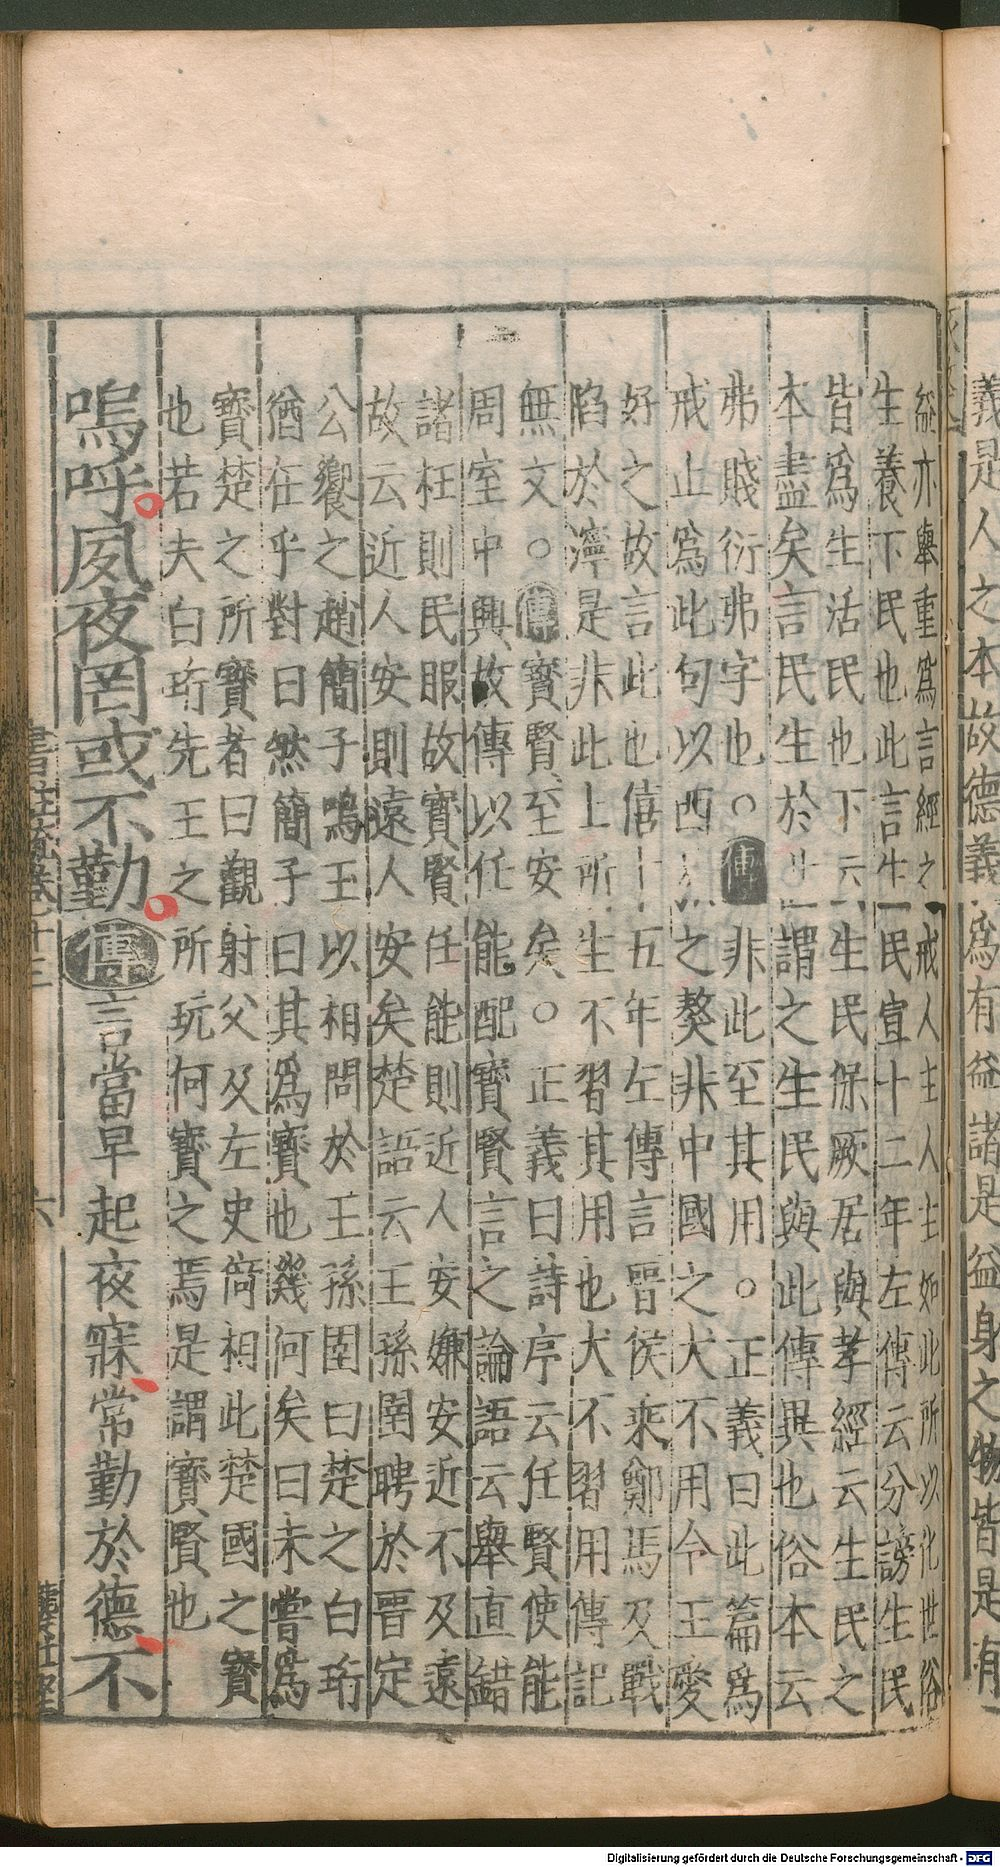 義是人之本故德義爲有益諸是益身之物皆是有
益亦舉重爲言經之戒人主人主如此所以化世俗
生養下民也此言生民宣十二年左傳云分謗生民
皆爲生活民也下云生民保厥居與孝經云生民之
本盡矣言民生於世謂之生民與此傳異也俗本云
弗賤衍弗字也○傳非此至其用○正義曰此篇爲
戒止爲此句以西之獒非中國之犬不用令王愛
好之故言此也僖十五年左傳言晉侯乘鄭馬及戰
陷於濘是非此上所生不習其用也犬不習用傳記
無文○傳寶賢至安矣○正義曰詩序云任賢使能
周室中興故傳以任能配寶賢言之論語云舉直錯
諸枉則民服故寶賢任能則近人安嫌安近不及遠
故云近人安則遠人安矣楚語云王孫圉聘於晉定
公饗之趙簡子鳴玉以相問於王孫圉曰楚之白珩
猶在乎對曰然簡子曰其爲寶也幾何矣曰未嘗爲
寶楚之所寶者曰觀射父及左史倚相此楚國之寶
也若夫白珩先王之所玩何寶之焉是謂寶賢也
嗚呼夙夜罔或不勤傳言當早起夜寐常勤於德不
書注疏卷十三
六
Digitalisierung gefördert durch die Deutsche Forschungsgemeinschaft - DFG